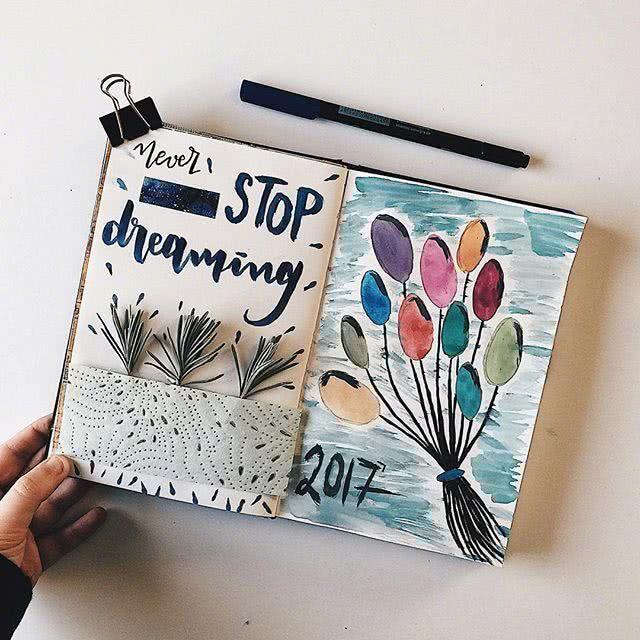 Never
STOP
dreaming
2017